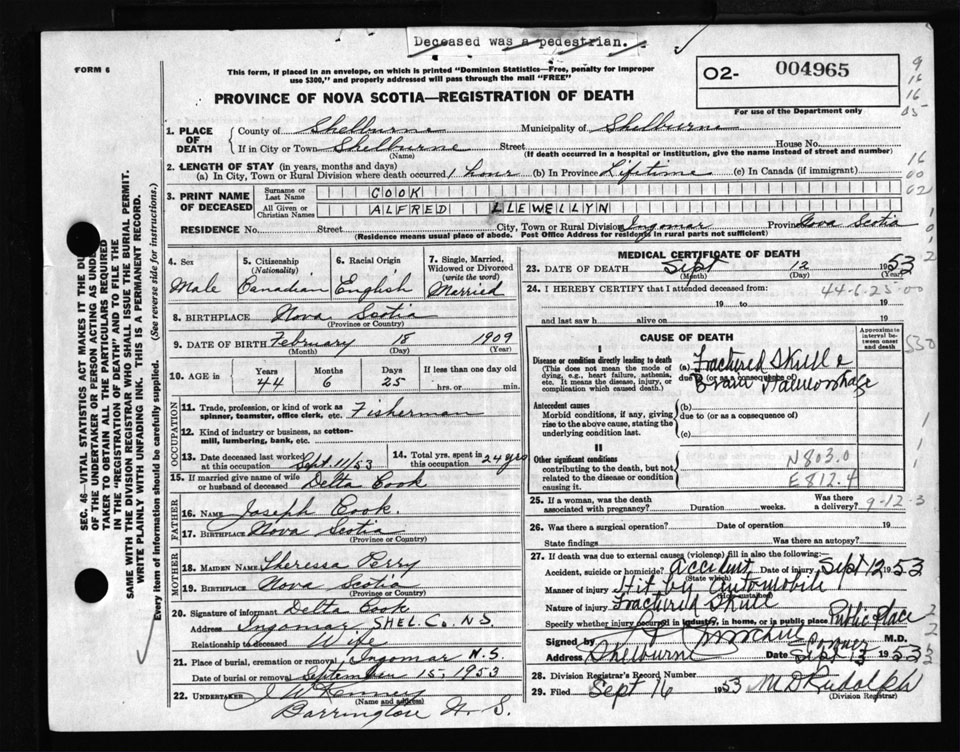 Deceased was a pedestrian.
FORM 6
This form, if placed in an envelope, on which is printed "Dominion Statistics—Free, penalty for improper
use $300," and properly addressed will pass through the mail "FREE"
O2- 004965
For use of the Department only
PROVINCE OF NOVA SCOTIA—REGISTRATION OF DEATH
1. PLACE OF DEATH
County of Shelburne Municipality of Shelburne
If in City or Town Shelburne Street House No.
(Name) (If death occurred in a hospital or institution, give the name instead of street and number)
2. LENGTH OF STAY (in years, months and days)
(a) In City, Town or Rural Division where death occurred 1 hour (b) In Province Lifetime (c) In Canada (if immigrant)
3. PRINT NAME OF DECEASED
Surname or Last Name COOK
All Given or Christian Names ALFRED LLEWELLYN
RESIDENCE No. Street City, Town or Rural Division Ingomar Province Nova Scotia
(Residence means usual place of abode. Post Office Address for residents in rural parts not sufficient)
4. Sex Male
5. Citizenship (Nationality) Canadian
6. Racial Origin English
7. Single, Married, Widowed or Divorced (write the word) Married
8. BIRTHPLACE Nova Scotia
(Province or Country)
9. DATE OF BIRTH February 18 1909
(Month) (Day) (Year)
10. AGE in Years Months Days If less than one day old
44 6 25 hrs. or min.
OCCUPATION
11. Trade, profession, or kind of work as spinner, teamster, office clerk, etc. Fisherman
12. Kind of industry or business, as cotton-mill, lumbering, bank, etc.
13. Date deceased last worked at this occupation Sept. 11/53
14. Total yrs. spent in this occupation 24 yrs
15. If married give name of wife or husband of deceased Delta Cook
FATHER
16. NAME Joseph Cook.
17. BIRTHPLACE Nova Scotia
(Province or Country)
MOTHER
18. MAIDEN NAME Theressa Perry
19. BIRTHPLACE Nova Scotia
(Province or Country)
20. Signature of informant Delta Cook
Address Ingomar SHEL. Co. N.S.
Relationship to deceased Wife
21. Place of burial, cremation or removal Ingomar N.S.
Date of burial or removal September 15, 1953
22. UNDERTAKER J W Kenney
(Name and address)
Barrington N. S.
MEDICAL CERTIFICATE OF DEATH
23. DATE OF DEATH Sept 12 1953
(Month) (Day) (Year)
24. I HEREBY CERTIFY that I attended deceased from: 44-6-25-00
19 to 19
and last saw h alive on 19
CAUSE OF DEATH
Approximate interval between onset and death
I
Disease or condition directly leading to death
(This does not mean the mode of dying, e.g., heart failure, asthenia, etc. It means the disease, injury, or complication which caused death.)
(a) Fractured Skull &
due to (or as a consequence of)
Brain Haemorrhage
Antecedent causes
Morbid conditions, if any, giving rise to the above cause, stating the underlying condition last.
(b)
due to (or as a consequence of)
(c)
II
Other significant conditions
contributing to the death, but not related to the disease or condition causing it.
N803.0
E812.4
25. If a woman, was the death associated with pregnancy? Duration weeks. Was there a delivery? 9-12-3
26. Was there a surgical operation? Date of operation 19
State findings Was there an autopsy?
27. If death was due to external causes (violence) fill in also the following:
Accident, suicide or homicide? Accident Date of injury Sept 12 1953
(State which)
Manner of injury Hit by Automobile
Nature of injury Fractured Skull
Specify whether injury occurred in industry, in home, or in public place Public Place
Signed by M.D.
Coroner
Address Shelburne Date Sept 13 1953
28. Division Registrar's Record Number
29. Filed Sept 16 1953 M D Rudolph
(Division Registrar)
SEC. 46—VITAL STATISTICS ACT MAKES IT THE DU
OF THE UNDERTAKER OR PERSON ACTING AS UNDE
TAKER TO OBTAIN ALL THE PARTICULARS REQUIRED
IN THE "REGISTRATION OF DEATH" AND TO FILE THE
SAME WITH THE DIVISION REGISTRAR WHO SHALL ISSUE THE BURIAL PERMIT.
WRITE PLAINLY WITH UNFADING INK. THIS IS A PERMANENT RECORD.
Every item of Information should be carefully supplied. (See reverse side for instructions.)